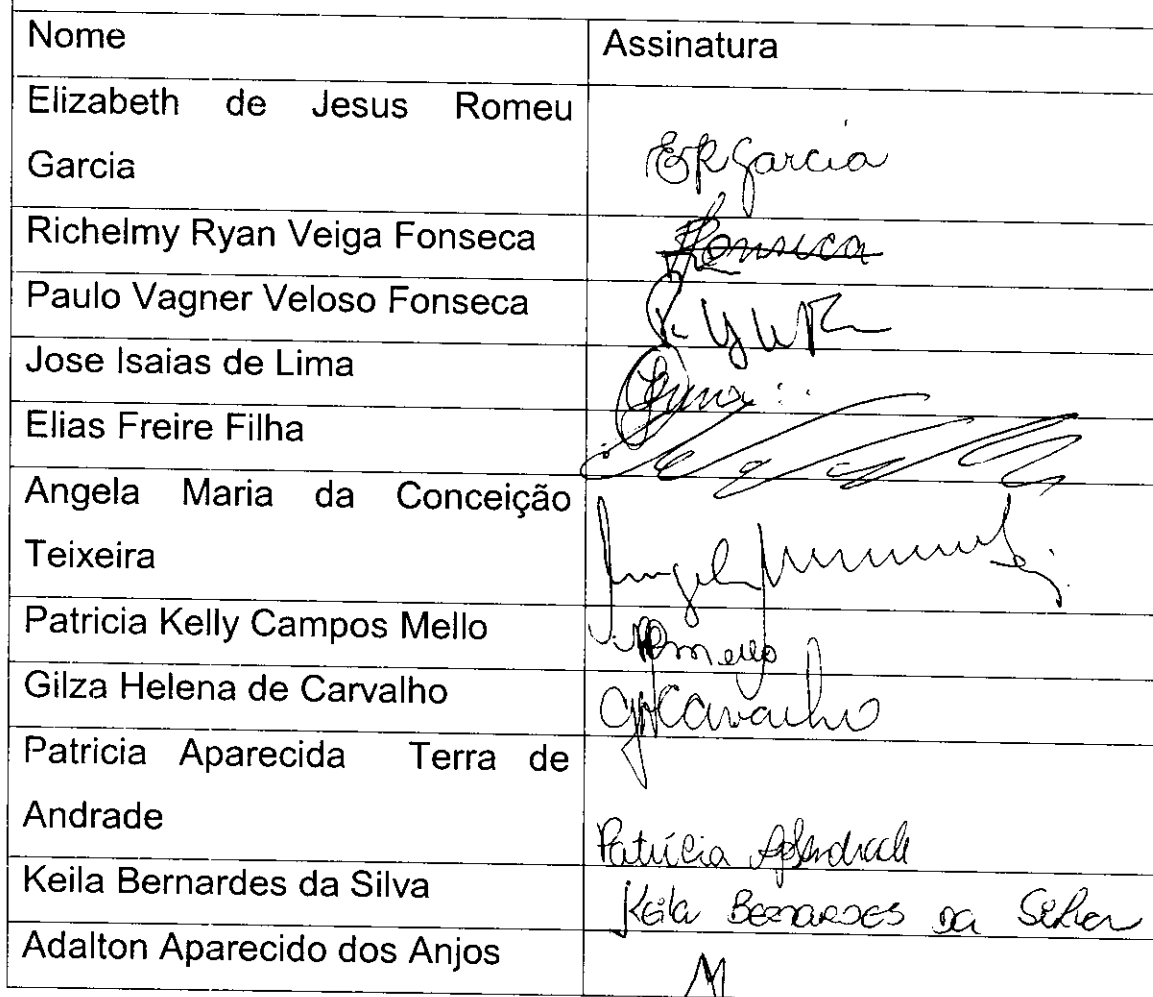 Nome Assinatura
Elizabeth de Jesus Romeu
Garcia ERGarcia
Richelmy Ryan Veiga Fonseca Fonseca
Paulo Vagner Veloso Fonseca
Jose Isaias de Lima
Elias Freire Filha
Angela Maria da Conceição
Teixeira Angela
Patricia Kelly Campos Mello
Gilza Helena de Carvalho GHCarvalho
Patricia Aparecida Terra de
Andrade Patrícia ApAndrade
Keila Bernardes da Silva Keila Bernardes da Silva
Adalton Aparecido dos Anjos